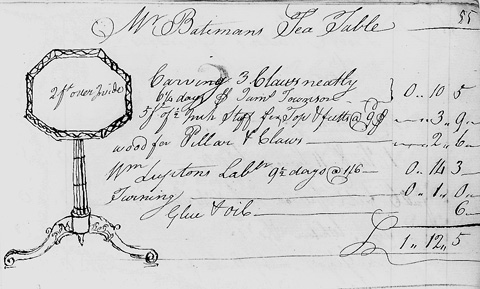 Mr Batemans Tea Table 55
2 ft over Inside
Carving 3 Claws neatly
6½ days J Jams Townson 0 .. 10 5
5 ft of ½ Inch Stuff for Top & feett @ 9d .. 3 .. 9
wood for Pillar & Claws .. 2 .. 6
Wm Luptons Labr 9½ days @ 1/6 — 0 .. 14 3
Turning 0 .. 1 .. 0
Glue & oil 6
L 1 .. 12 .. 5